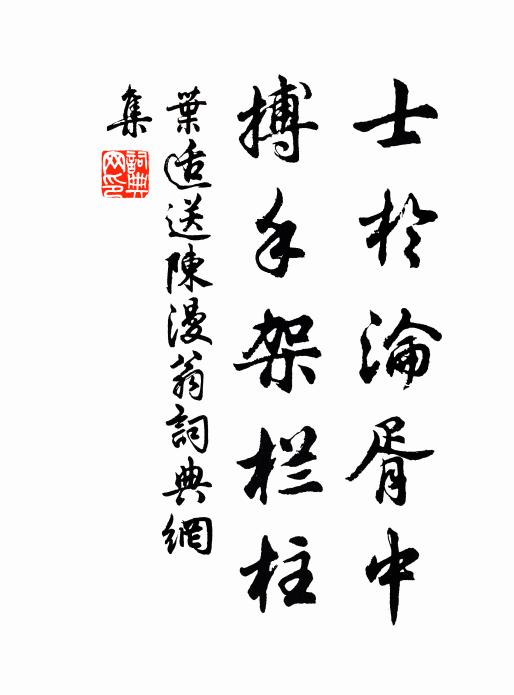 士於淪胥中
搏手架栏柱
葉适送陳漫翁詞典網
集
詞典網印